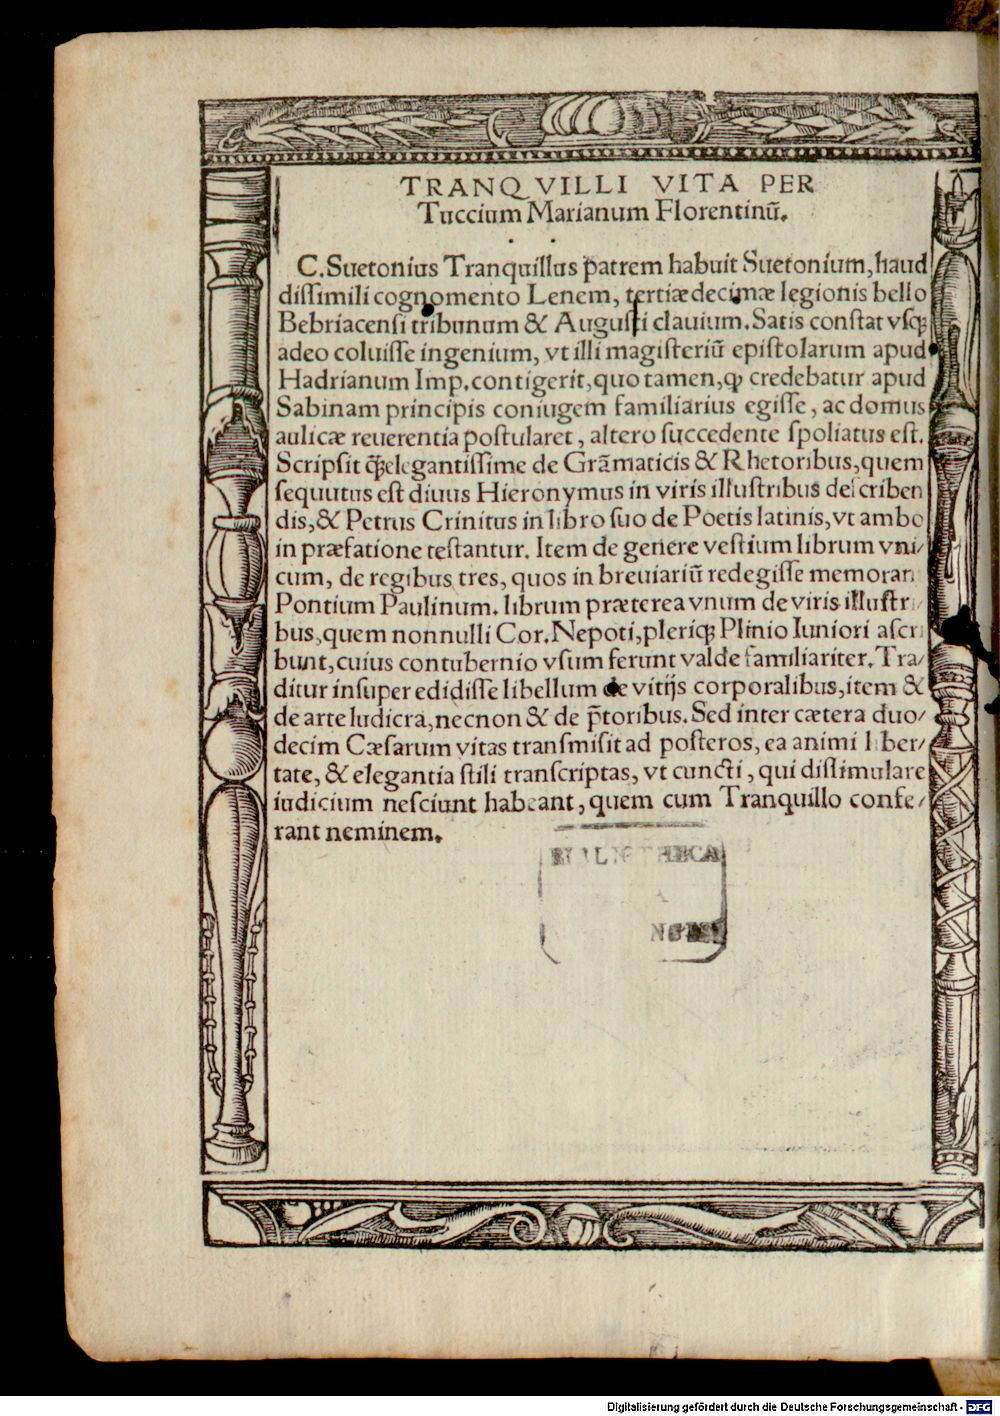 TRANQVILLI VITA PER
Tuccium Marianum Florentinū.
C. Suetonius Tranquillus patrem habuit Suetonium, haud
dissimili cognomento Lenem, tertiædecimæ legionis bello
Bebriacensi tribunum & Augusti clauium. Satis constat vsq;
adeo coluisse ingenium, vt illi magisteriū epistolarum apud
Hadrianum Imp. contigerit, quo tamen, ꝙ credebatur apud
Sabinam principis coniugem familiarius egisse, ac domus
aulicæ reuerentia postularet, altero succedente spoliatus est.
Scripsit q̃elegantissime de Grãmaticis & Rhetoribus, quem
sequutus est diuus Hieronymus in viris illustribus describen
dis, & Petrus Crinitus in libro suo de Poetis latinis, vt ambo
in præfatione testantur. Item de genere vestium librum vni/
cum, de regibus tres, quos in breuiariū redegisse memoran
Pontium Paulinum. librum præterea vnum de viris illustri
bus, quem nonnulli Cor. Nepoti, pleriq; Plinio Iuniori ascri
bunt, cuius contubernio vsum ferunt valde familiariter. Tra/
ditur insuper edidisse libellum de vitijs corporalibus, item &
de arte ludicra, necnon & de p̃toribus. Sed inter cætera duo/
decim Cæsarum vitas transmisit ad posteros, ea animi liber/
tate, & elegantia stili transcriptas, vt cuncti, qui dissimulare
iudicium nesciunt habeant, quem cum Tranquillo confe/
rant neminem.
BIBLIOTHECA
A
Digitalisierung gefördert durch die Deutsche Forschungsgemeinschaft - DFG